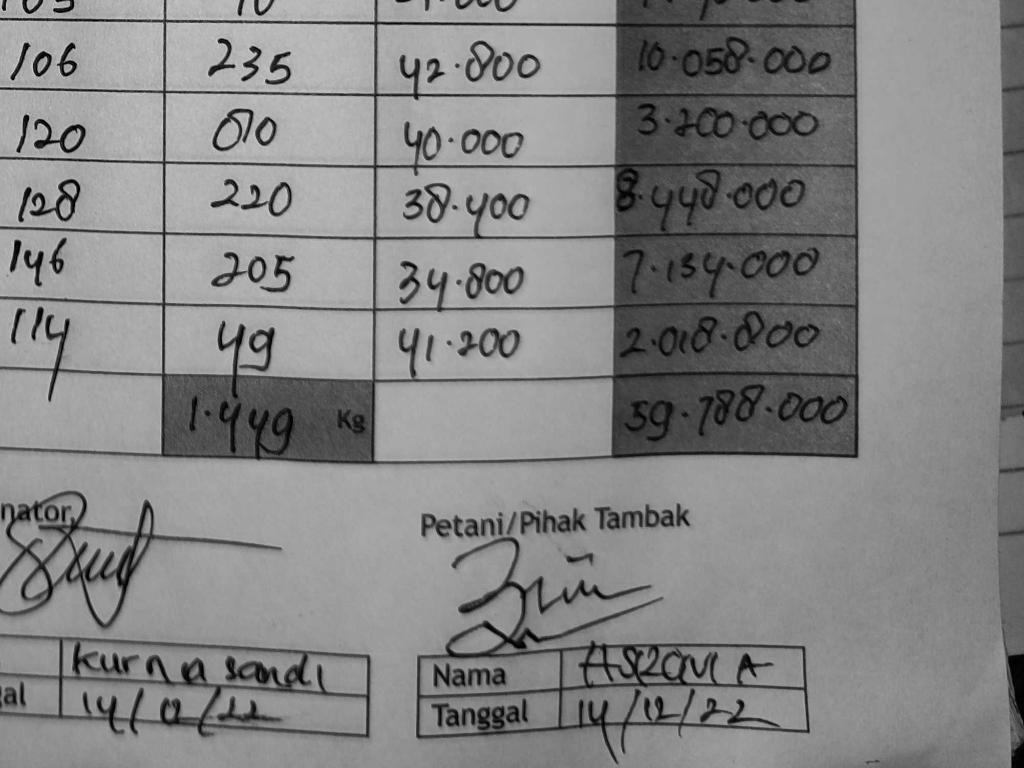 106 235 42.800 10.058.000
120 80 40.000 3.200.000
128 220 38.400 8.448.000
146 205 34.800 7.134.000
114 49 41.200 2.018.800
1.449 Kg 59.788.000
nator,
Petani/Pihak Tambak
Kurnasandi
al 14/12/22
Nama
Tanggal 14/12/22